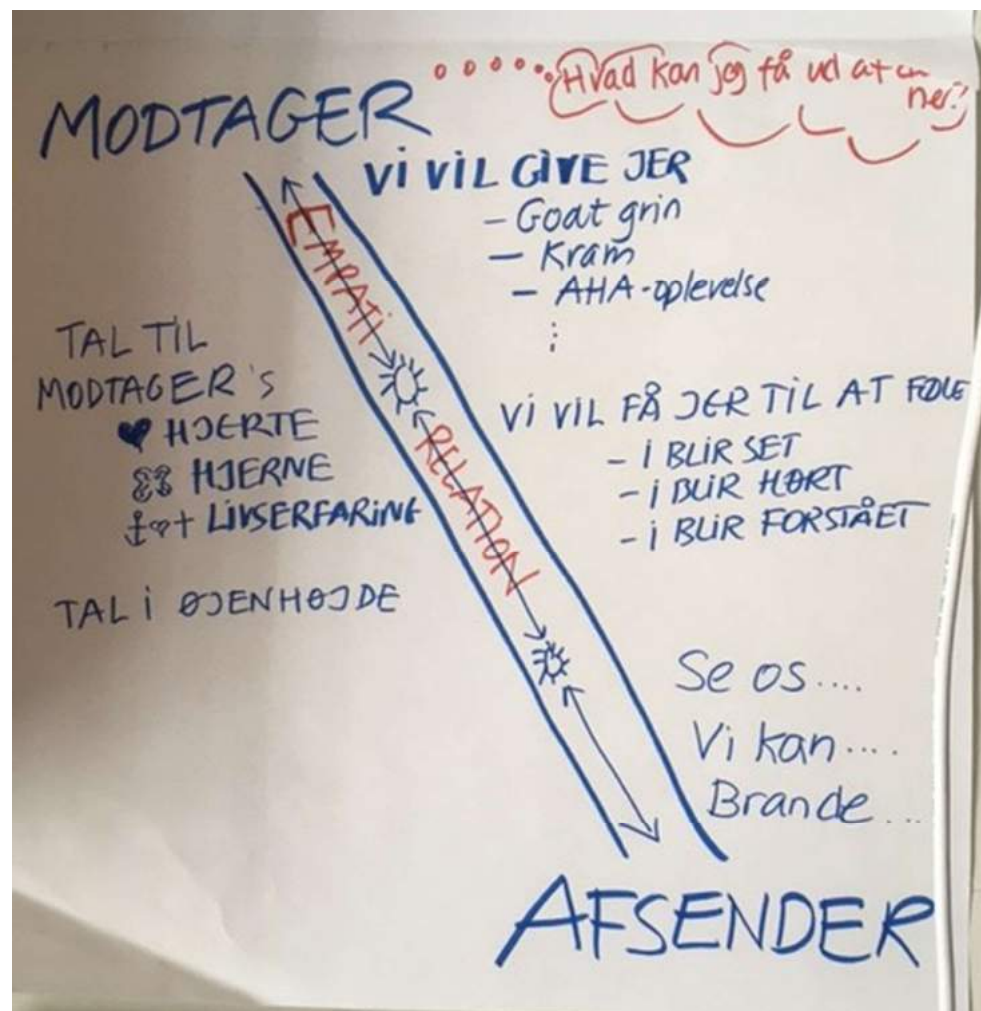 MODTAGER
Hvad kan jeg få ud af
Vi VIL GIVE JER
- Godt grin
- Kram
- AHA-oplevelse
EMPATI
TAL TIL
MODTAGER'S
HJERTE
HJERNE
LIVSERFARING
TAL i ØJENHØJDE
RELATION
Vi VIL FÅ JER TIL AT FØLE
- I BLIR SET
- i BLIR HØRT
- i BLIR FORSTÅET
Se os....
Vi kan....
Brande...
AFSENDER